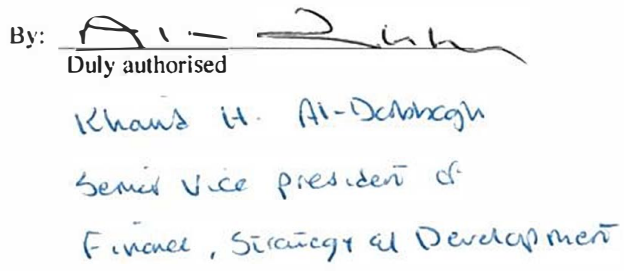 By:
Duly authorised
Khalid H. Al-Dabbagh
Senior Vice president of
Finance, Strategy & Development